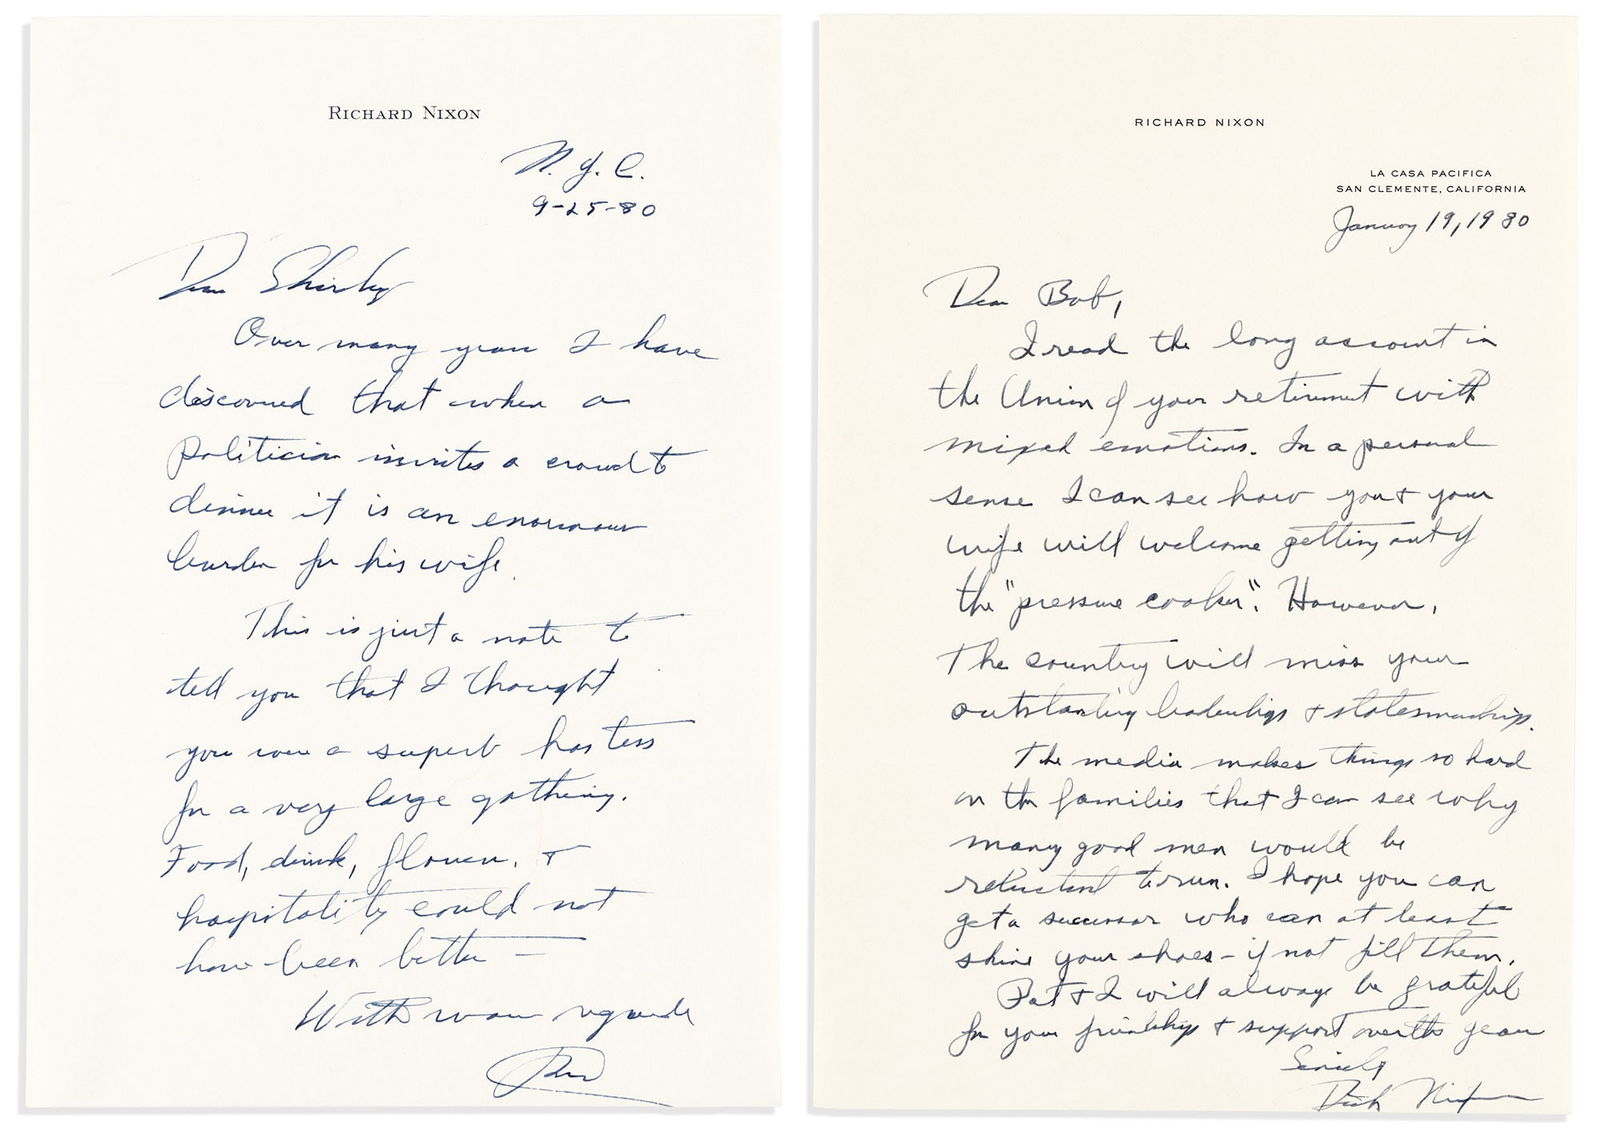 RICHARD NIXON
N.Y.C.
9-25-80
Dear Shirley
Over many years I have
discovered that when a
politician invites a crowd to
dinner it is an enormous
burden for his wife.
This is just a note to
tell you that I thought
you were a superb hostess
for a very large gathering.
Food, drink, flowers, +
hospitality could not
have been better —
With warm regards
RICHARD NIXON
LA CASA PACIFICA
SAN CLEMENTE, CALIFORNIA
January 19, 1980
Dear Bob,
I read the long account in
the Union of your retirement with
mixed emotions. In a personal
sense I can see how you + your
wife will welcome getting out of
the "pressure cooker". However,
The country will miss your
outstanding leadership + statesmanship.
The media makes things so hard
on the families that I can see why
many good men would be
reluctant to run. I hope you can
get a successor who can at least
shine your shoes - if not fill them.
Pat + I will always be grateful
for your friendship + support over the years
Sincerely
Dick Nixon